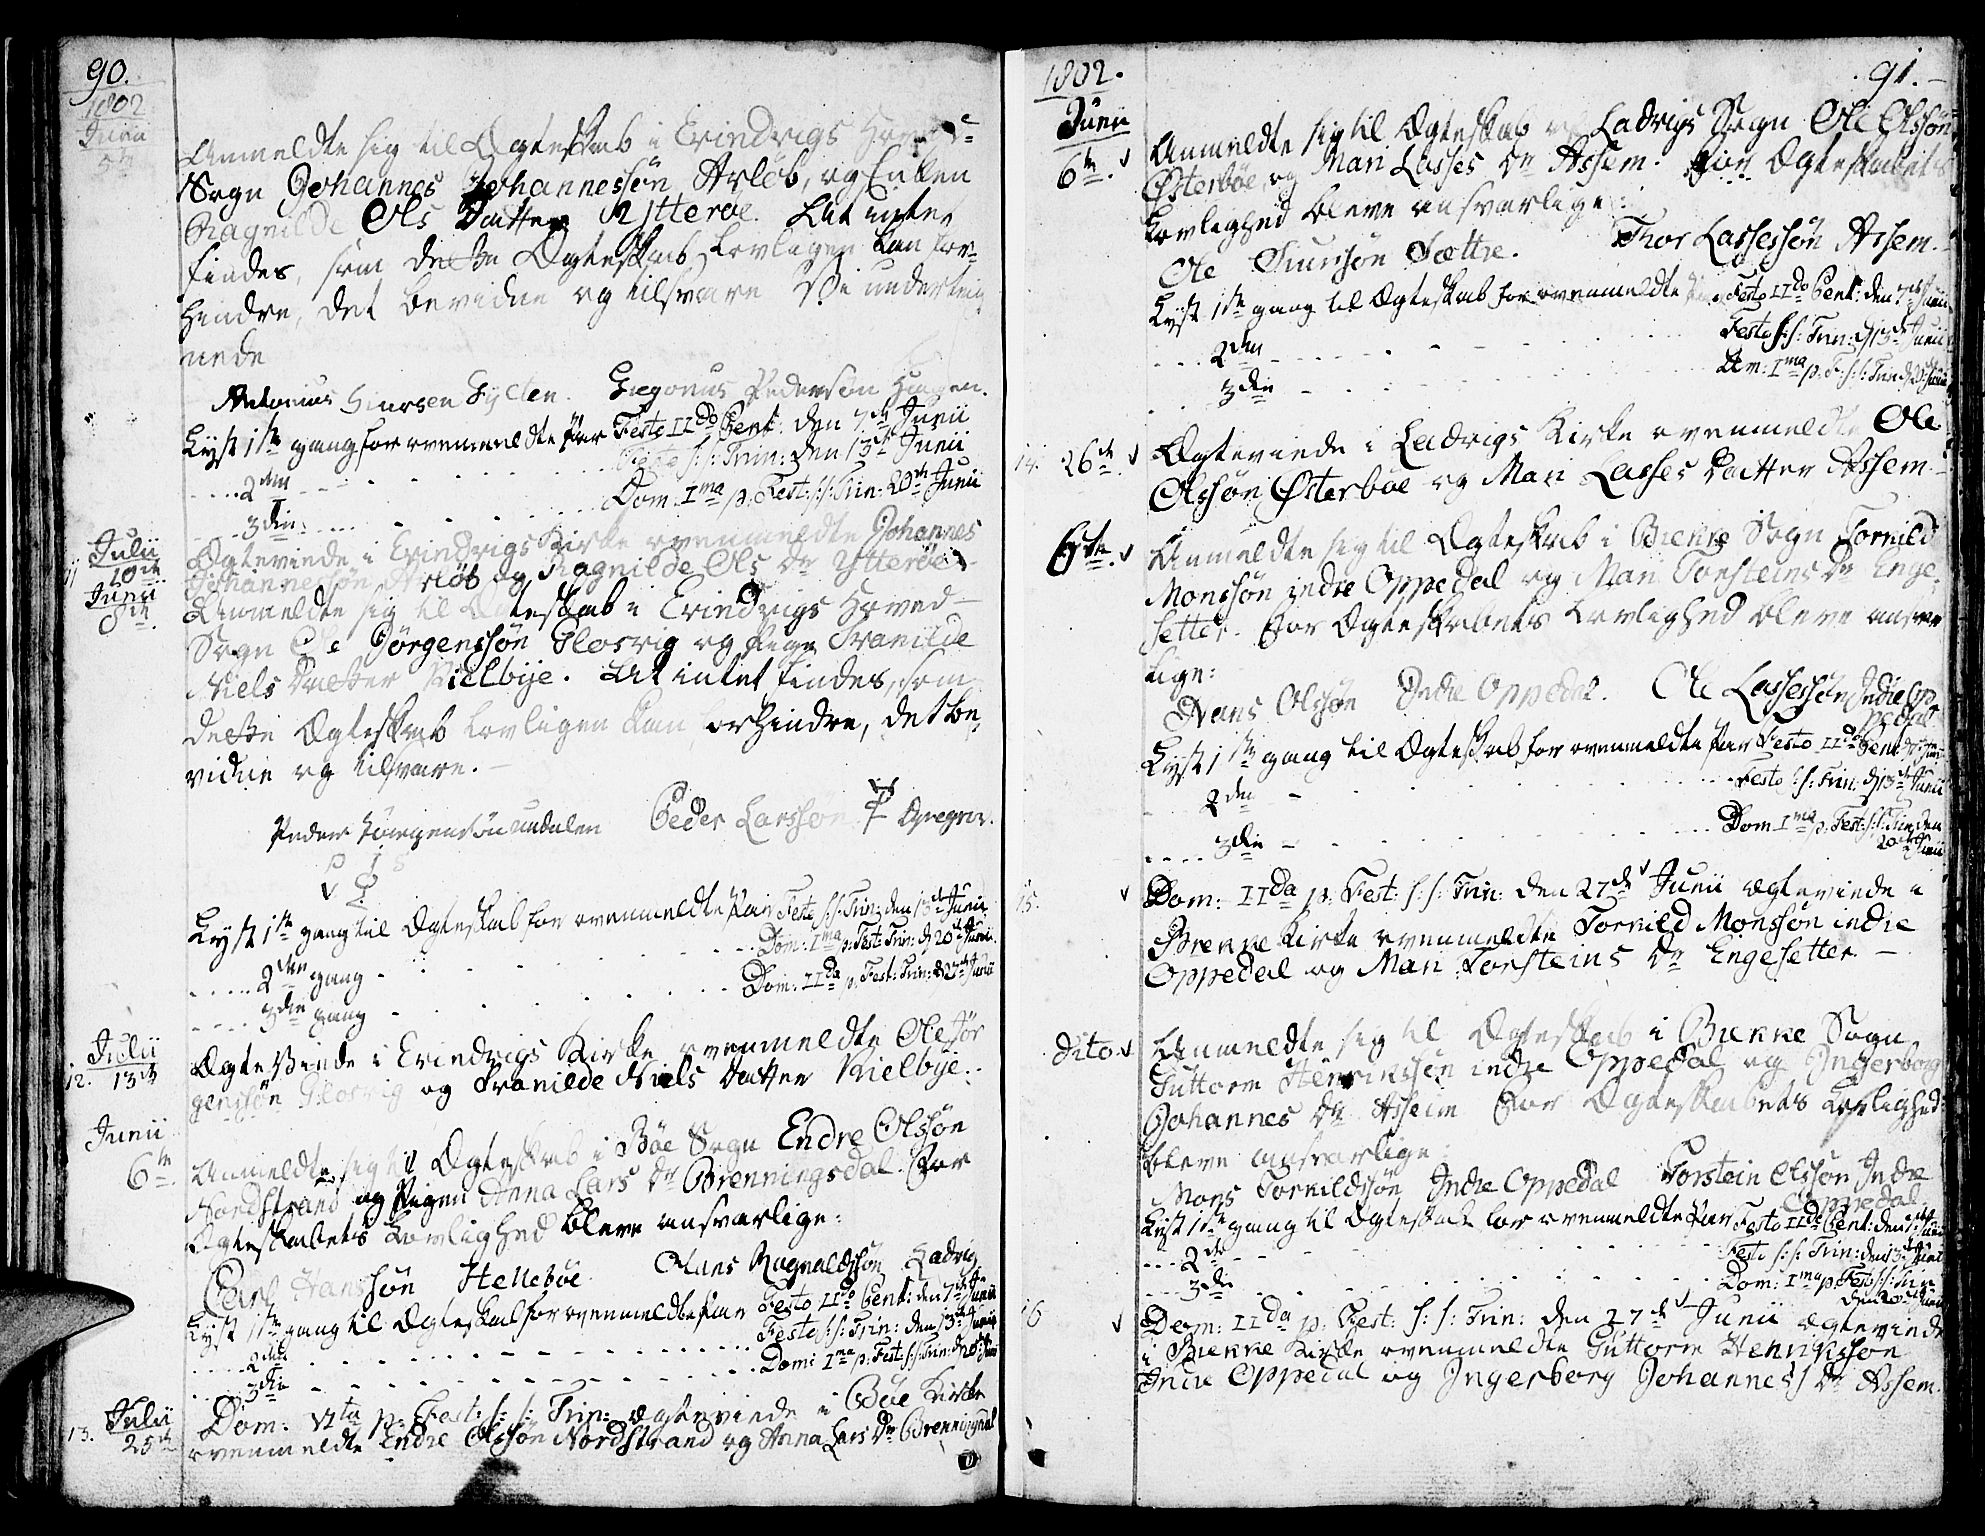 90.
1802
Junii
5te
Anmeldte sig til Ægteskab i Evindvigs Hoved-
Sogn Johannes Johannessøn Arløb, og Enken
Ragnilde Ols Datter Ytteröe. At intet
findes, som dette Ægteskab lovligen kan for-
hindre, det bevidne og tilsvare Vi underteig
nede
Antonius Hansen Gregorius Pedersøn Haagen.
Lyst 1ste gang for ovenmeldte Par Festo IIdo Pent: den 7de Junii
2den Festo s: s: Trin: den 13de Junii
3die Dom: Ima p: Fest: s: s: Trin: 20de Junii
Julii
11 10de
Ægteviede i Evindvigs Kirke ovenmeldte Johannes
Johannessøn Arløb og Ragnilde Ols Dr Ytteröe.
Junii
8de
Anmeldte sig til Ægteskab i Evindvigs Hoved-
Sogn Ole Jørgenssøn Glosvig og Pigen Tranilde
Niels Datter Kielbye. At intet findes, som
dette Ægteskab lovligen kan forhindre, det be-
vidne og tilsvare.
Peder Jørgensøn Peder Larssøn
Lyst 1ste gang til Ægteskab for ovenmeldte Par Festo s: s: Trin: den 13de Junii
2den gang Dom: Ima p: Fest: Trin: d 20de Junii
3die gang Dom: IIda p: Fest: Trin: d 27de Junii
Julii
12. 13de
Ægteviede i Evindvigs Kirke ovenmeldte Ole Jør
genssøn Glosvig og Tranilde Niels Datter Kielbye.
Junii
6te
Anmeldte sig til Ægteskab i Böe Sogn Endre Olssøn
Nordstrand og Pigen Anna Lars Dr Brenningsdal. For
Ægteskabets Lovlighed bleve ansvarlige:
Carl Hanssøn Hellebøe Hans Ragnaldssøn Ladvig
Lyst 1ste gang til Ægteskab for ovenmeldte Par Festo IIdo Pent: den 7de Junii
2den Festo s: s: Trin: den 13de Junii
3die Dom: Ima p: Fest: s: s: Trin: d 20de Junii
Julii
13. 25de
Dom: VIta p: Fest: s: s: Trin: ægteviede i Böe Kirke
ovenmeldte Endre Olssøn Nordstrand og Anna Lars Dr Brenningsdal
1802. 91.
Junii
6te
Anmeldte sig til Ægteskab i Ladvigs Sogn Ole Olssøn
Østerbøe og Mari Lasses Dr Assem. For Ægteskabets
Lovlighed bleve ansvarlige:
Ole Thor Lassessøn Assem.
Lyst 1ste gang til Ægteskab for ovenmeldte Par Festo IIdo Pent: den 7de Junii
2den Festo s: s: Trin: d 13de Junii
3die Dom: Ima p: F: s: s: Trin d 20de Junii
14. 26de
Ægteviede i Ladvigs Kirke ovenmeldte Ole
Olssøn Østerbøe og Mari Lasses Datter Assem.
6te
Anmeldte sig til Ægteskab i Brekke Sogn Torkild
Monssøn indre Oppedal og Mari Torsteins Dr Enge-
setter. For Ægteskabets Lovlighed bleve ansvar
lige:
Hans Olssøn Indre Oppedal. Ole Lassessøn Indre Op
pedal
Lyst 1ste gang til Ægteskab for ovenmeldte Par Festo IIdo Pent d 7de Junii
2den Festo s: s: Trin: d 13de Junii
3die Dom Ima p: Fest: s: s: Trin den
20de Junii
15.
Dom: IIda p: Fest: s: s: Trin: den 27de Junii ægteviede i
Brekke Kirke ovenmeldte Torkild Monssøn indre
Oppedal og Mari Torsteins Dr Engesetter
Dito
Anmeldte sig til Ægteskab i Brekke Sogn
Guttorm Henrikssøn indre Oppedal og Ingerborg
Johannes Dr Assem For Ægteskabets Lovlighed
bleve ansvarlige
Mons Torkildssøn Indre Oppedal Torstein Olssøn Indre
Oppedal
Lyst 1ste gang til Ægteskab for ovenmeldte Par Festo IIdo Pent: den 7de Junii
2de Festo s: s: Trin: den 13de Junii
3die Dom: Ima p Fest: s: s: Trin
den 20de Junii
16
Dom: IIda p: Fest: s: s: Trin: den 27de Junii ægteviede
i Brekke Kirke ovenmeldte Guttorm Henrikssøn
Indre Oppedal og Ingerborg Johannes Dr Assem.